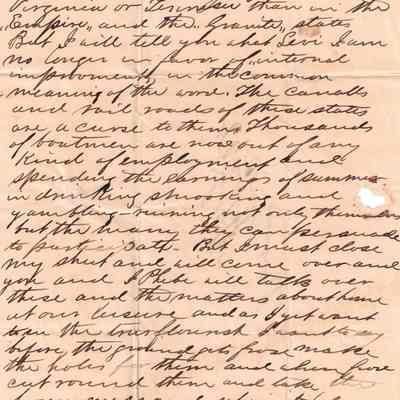 Virginia or Tennessee than in the
"Empire" and the "Granite" states
But I will tell you what Levi I am
no longer in favor of "internal
improvments in the common
meaning of the word. The canalls
and rail roads of these states
are a curse to them. Thousands
of boatmen are now out of any
kind of employment and
spending the earnings of summer
in drinking smooking and
gambling ruining not only themselvs
but the many they can persuade
to participate. But I must close
my sheet and will come over and
you and I Phebe will talk over
these and the matters about home
at our leisure and as I yet want
to the I want to say
before the ground gets frose make
the holes for them and when frose
cut round them and take this